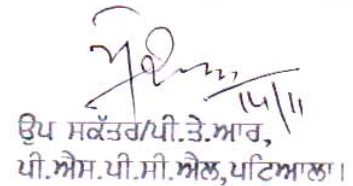 14/11
ਉਪ ਸਕੱਤਰ/ਪੀ.ਤੇ.ਆਰ,
ਪੀ.ਐਸ.ਪੀ.ਸੀ.ਐਲ,ਪਟਿਆਲਾ।